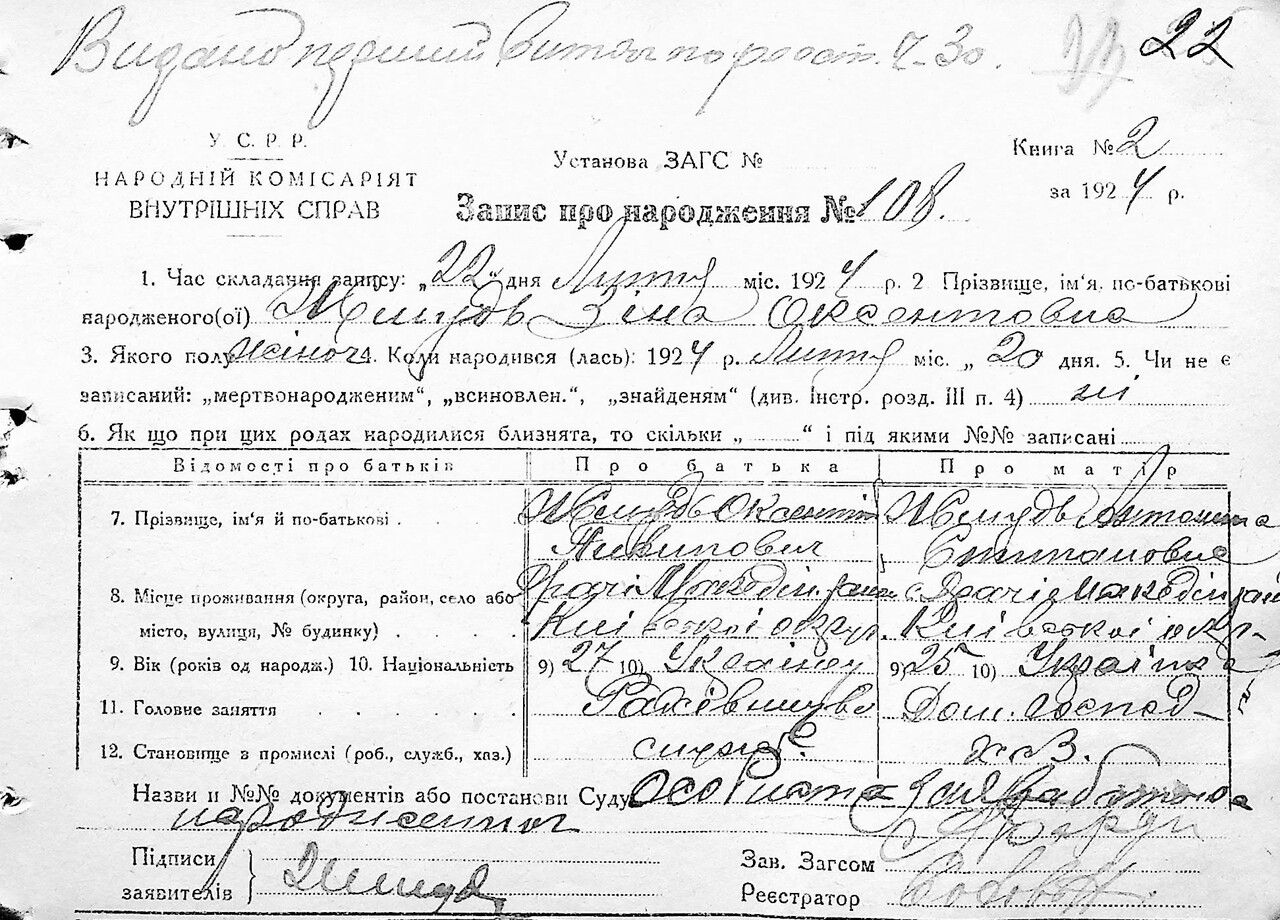 Видано перший витяг по реєст. Ч-30. 22
У. С. Р. Р.
НАРОДНІЙ КОМІСАРІЯТ
ВНУТРІШНІХ СПРАВ
Установа ЗАГС №
Книга № 2
за 1924 р.
Запис про народження № 108.
1. Час складання запису: „22“ дня Лютня міс. 1924 р. 2 Прізвище, ім'я, по-батькові
народженого(ої) Жмудь Зіна Оксентовна
3. Якого полу жіноч 4. Коли народився (лась): 1924 р. Лютня міс. „ 20 дня. 5. Чи не є
записаний: „мертвонародженим“, „всиновлен.“, „знайденям“ (див. Інстр. розд. III п. 4) ні
6. Як що при цих родах народилися близнята, то скільки „ “ і під якими №№ записані
Відомості про батьків Про батька Про матір
7. Прізвище, ім'я й по-батькові Жмудь Оксентій Жмудь Антонина
Степановна
8. Місце проживання (округа, район, село або Македон. Македон. рай
місто, вулиця, № будинку) Київської округ. Київської окр-
9. Вік (років од народж.) 10. Національність 9) 27 10) Українец 9) 25 10) Українка
11. Головне заняття Рахівництво Дом. господ-
12. Становище з промислі (роб., служб., хаз.) служб. хаз.
Назви и №№ документів або постанови Суду Особиста заява батька
народженної
Підписи
заявителів Жмудь
Зав. Загсом
Реєстратор